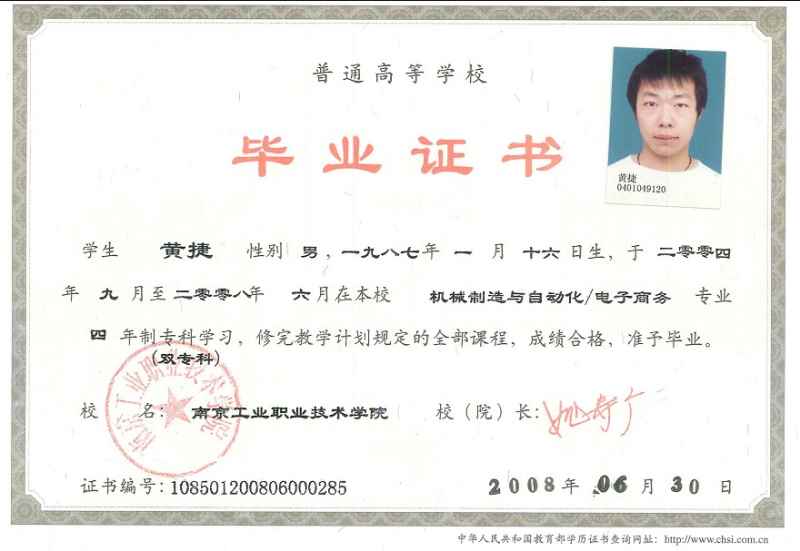 普通高等学校
毕业证书
黄捷
0401049120
学生 黄捷 性别 男，一九八七年 一 月 十六 日生，于 二零零四
年 九 月至 二零零八年 六月在本校 机械制造与自动化/电子商务 专业
四 年制专科学习，修完教学计划规定的全部课程，成绩合格，准予毕业。
(双专科)
南京工业职业技术学院
校 名： 南京工业职业技术学院 校（院）长：
证书编号：108501200806000285 2008 年 06 月 30 日
中华人民共和国教育部学历证书查询网址：http://www.chsi.com.cn